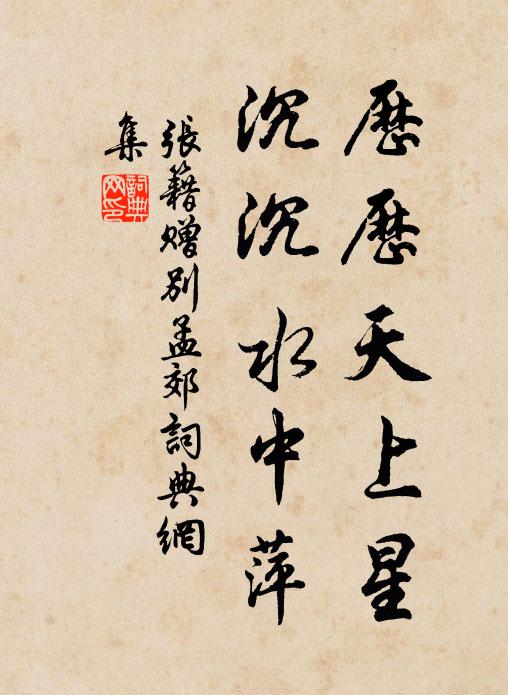 歷歷天上星
沉沉水中萍
張籍贈別孟郊詞典網
集
詞典
网印